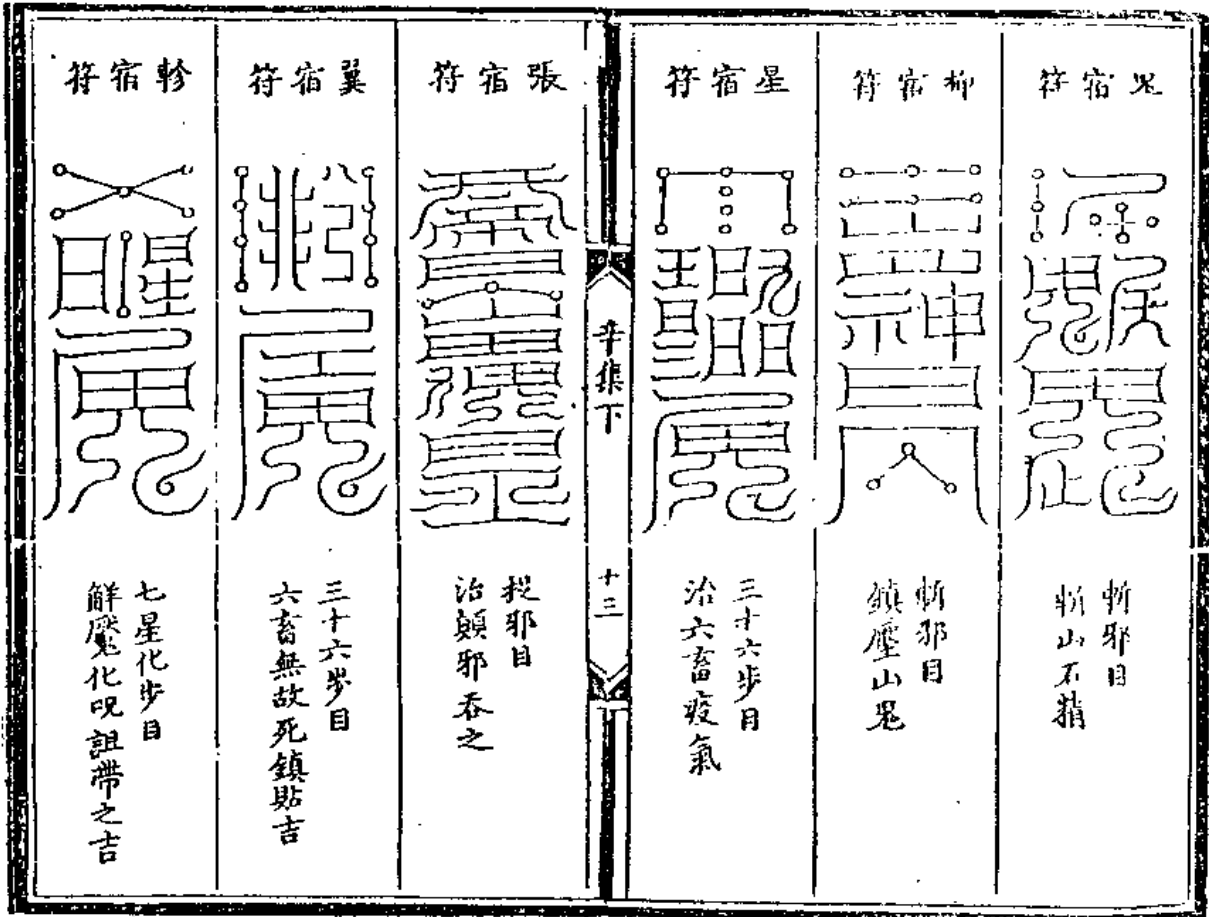 鬼宿符
斬邪目
斬山石精
柳宿符
斬邪目
鎮壓山鬼
星宿符
三十六步目
治六畜疫氣
辛集下
十三
張宿符
捉邪目
治顛邪吞之
翼宿符
三十六步目
六畜無故死鎮貼吉
軫宿符
七星化步目
解魘化呪詛帶之吉